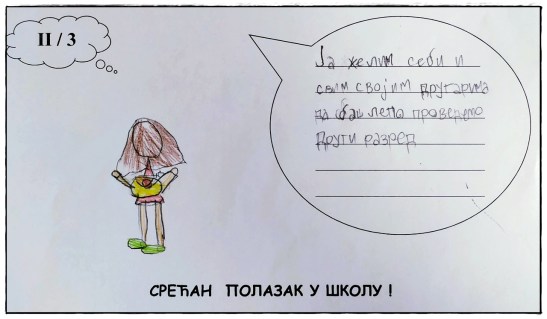 II / 3
Ја желим себи и
свим својим другарима
да баш лепо проведемо
други разред
СРЕЋАН ПОЛАЗАК У ШКОЛУ !